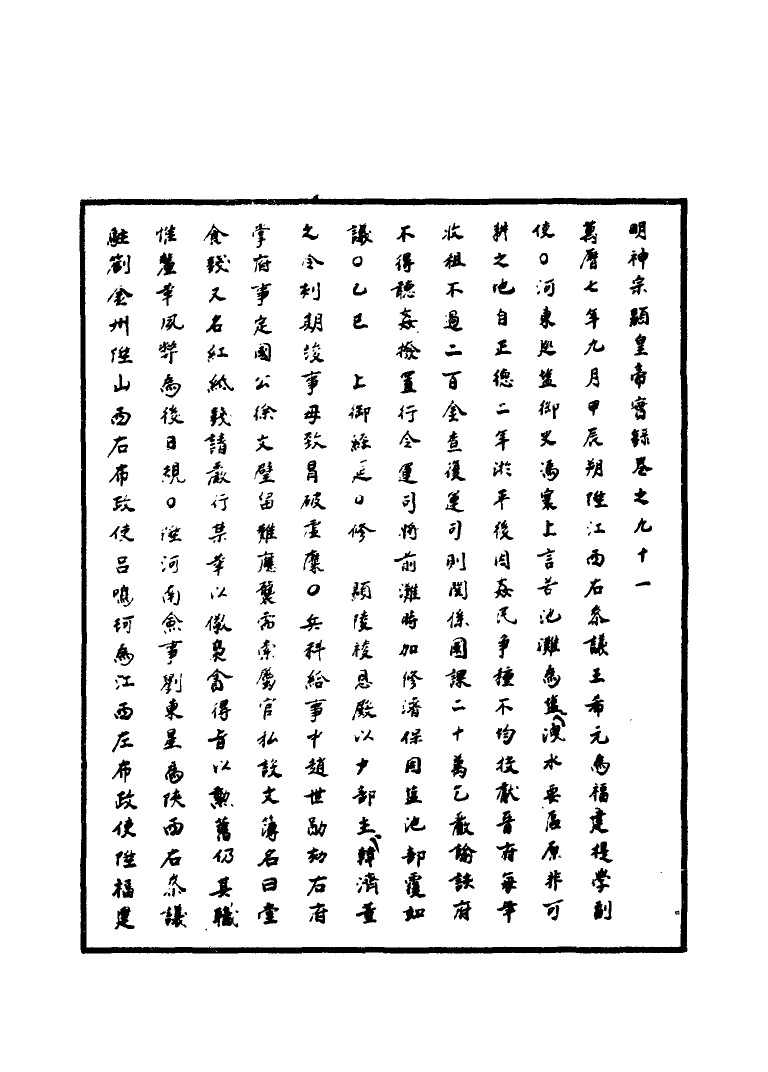 明神宗顯皇帝實錄卷之九十一
萬曆七年九月甲辰朔陞江西右叅議王希元為福建提學副
使○河東巡鹽御史馮寀上言苦池灘為鹽洩水要區原非可
耕之地自正德二年淤平後因姦民爭種不均投獻晉府每年
收租不過二百金查復運司則関係國課二十萬乞嚴諭該府
不得聽姦撥置行令運司將前灘時加修濬保固盐池部覆如
議○乙巳　上御經筵○修　顯陵祾恩殿以少部主韓濟董
之令刻期竣事毋致冐破虛縻○兵科給事中趙世勛劾右府
掌府事定國公徐文璧留難應襲需索屬官私設文簿名曰堂
食錢又名紅紙錢請嚴行某革以儆梟貪得旨以勲舊仍其職
惟釐革夙弊為後日規○陞河南僉事劉東星為陝西右叅議
駐劄金州陞山西右布政使呂鳴珂為江西左布政使陞福建